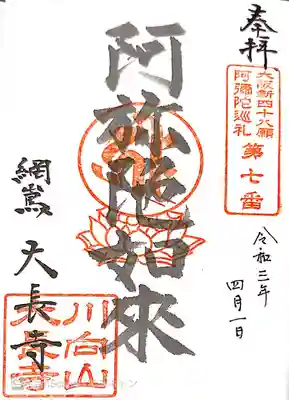 奉拝
大阪新四十八願
阿彌陀巡礼
第七番
令和三年
四月一日
阿弥陀如來
網嶌 大長寺
川向山
大長寺